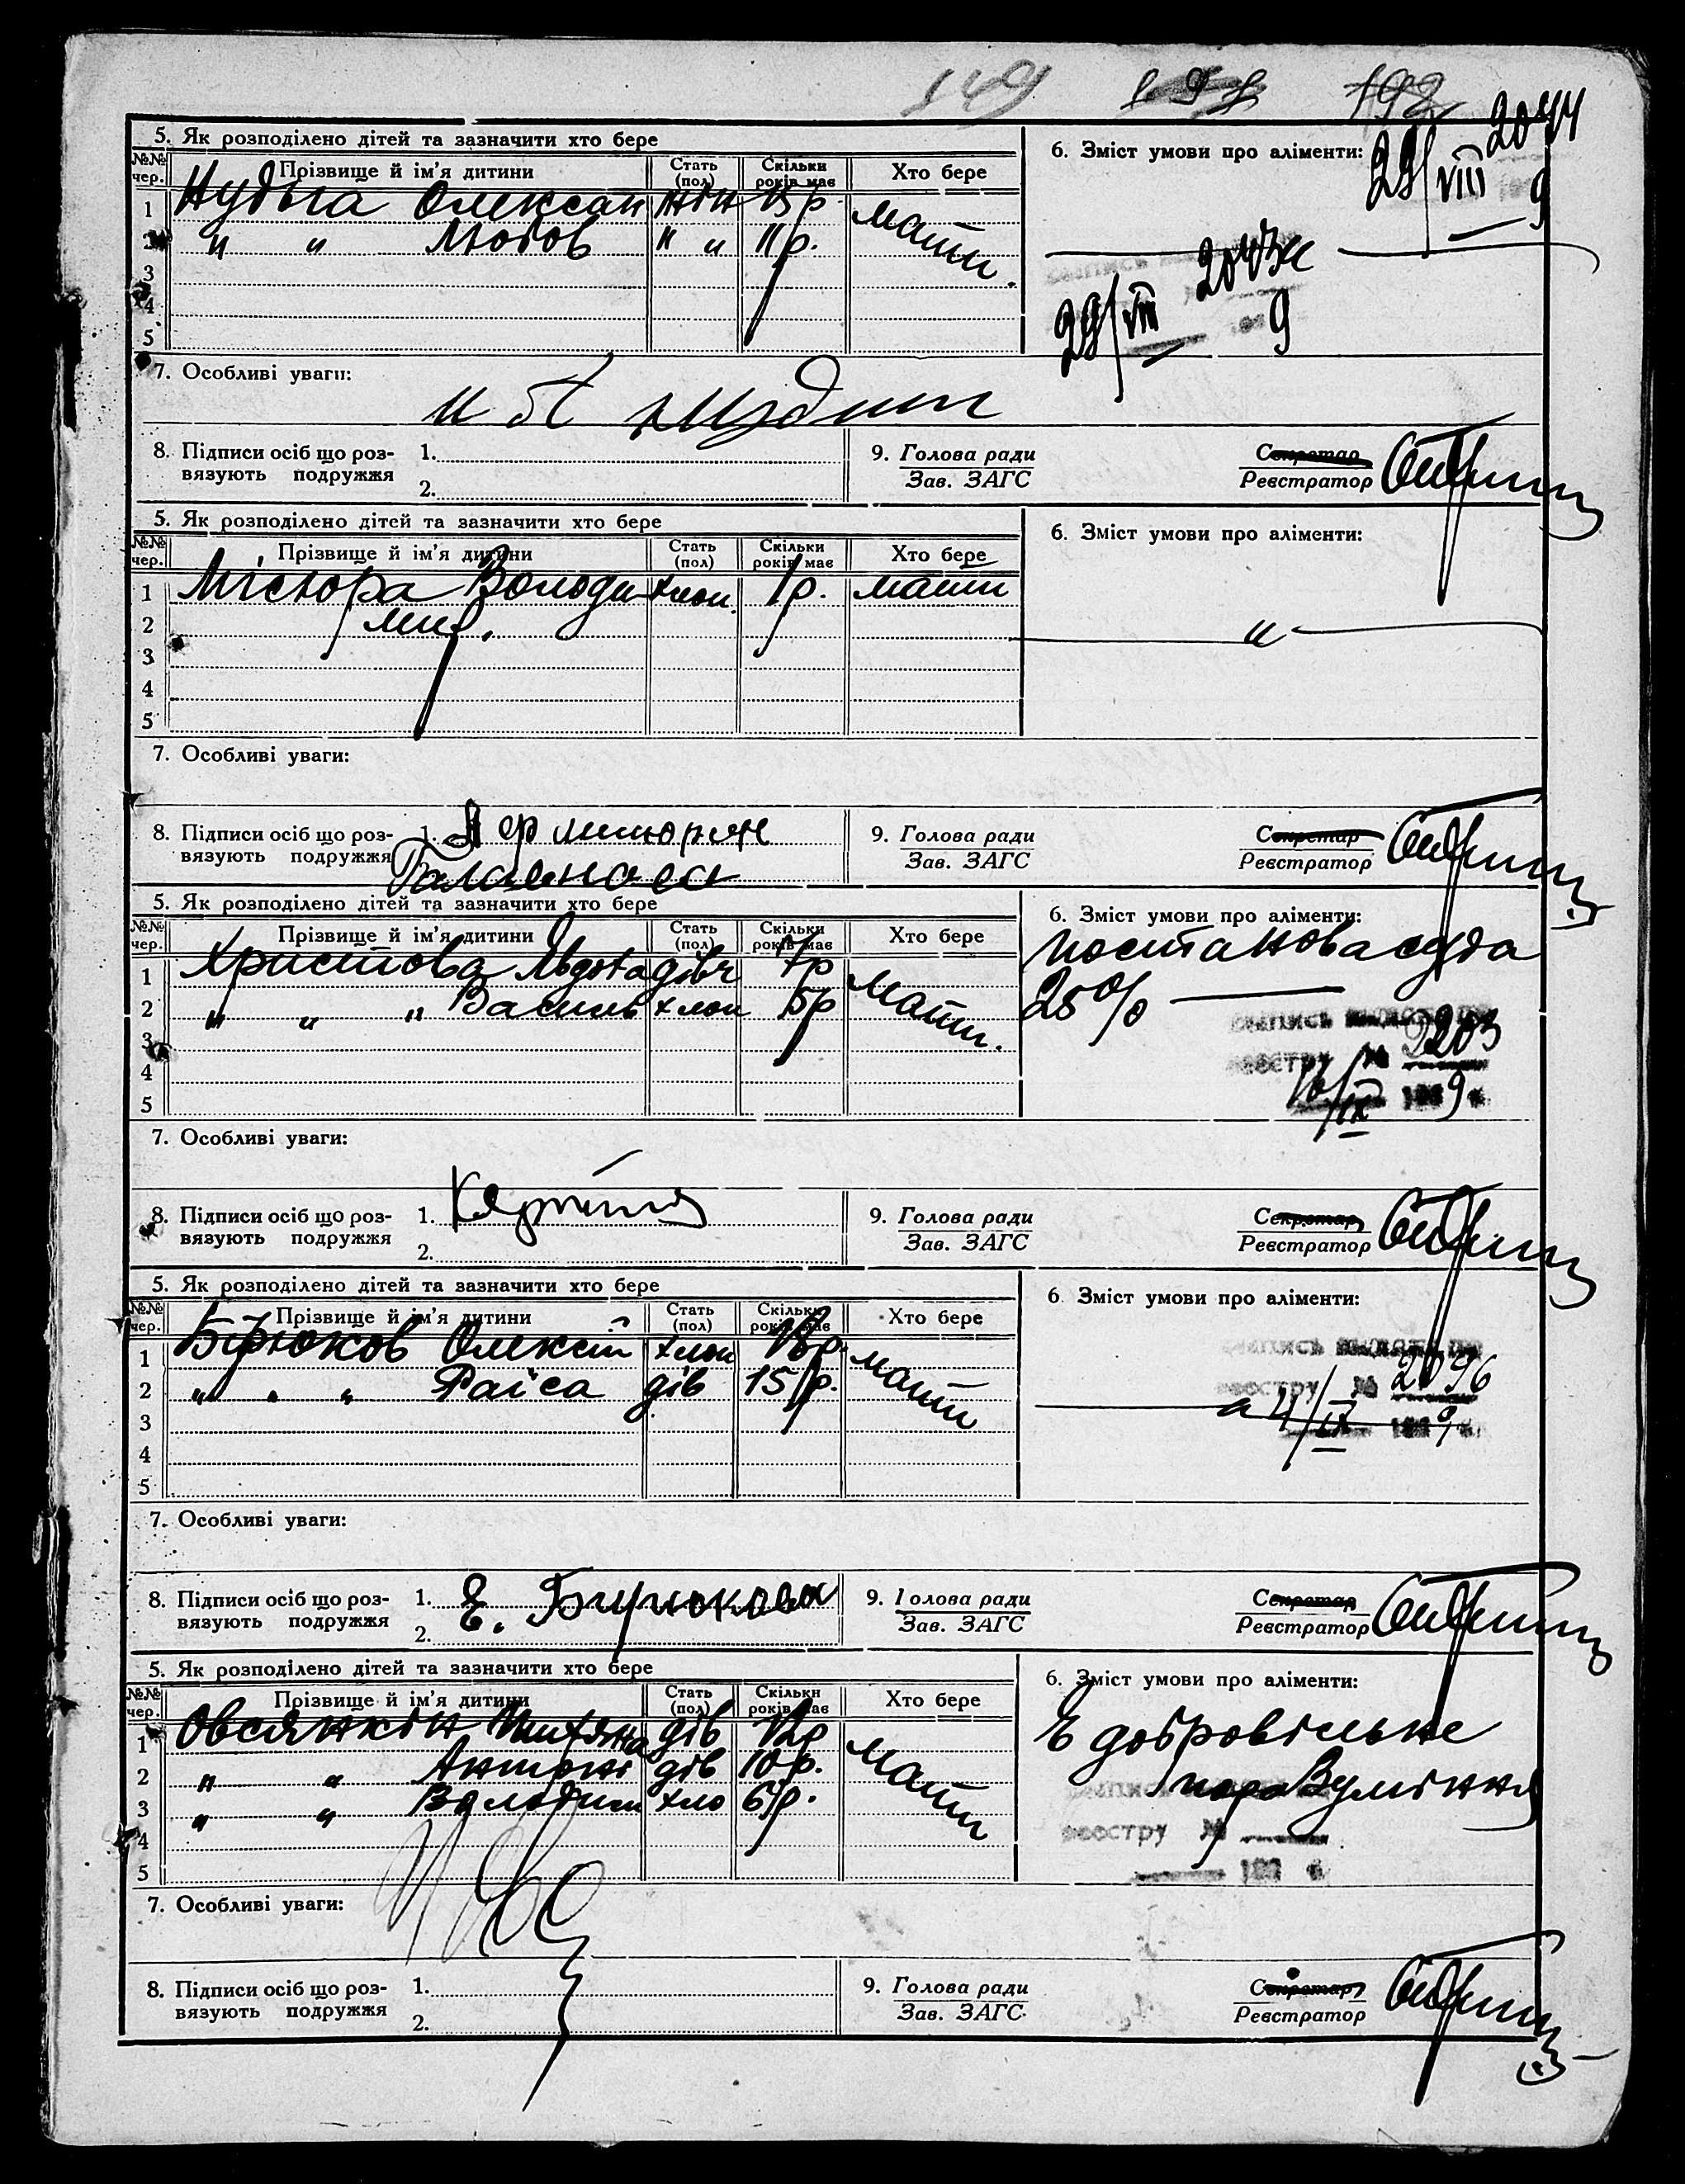 149 192
5. Як розподілено дітей та зазначити хто бере
6. Зміст умови про аліменти:
2044
29/VIII 9
№№ чер. Прізвище й ім'я дитини Стать (пол) Скільки років має Хто бере
1 Нудьга Олексан жін 15 р мати.
2 " " Любов " " 11 р.
3
4
5
29/VIII 9
7. Особливі уваги:
8. Підписи осіб що роз-
вязують подружжя
1.
2.
9. Голова ради
Зав. ЗАГС
Секретар
Реєстратор
5. Як розподілено дітей та зазначити хто бере
6. Зміст умови про аліменти:
№№ чер. Прізвище й ім'я дитини Стать (пол) Скільки років має Хто бере
1 Місюра Володи- хлоп. 1 р. мати
2 мир.
3
4
5
7. Особливі уваги:
8. Підписи осіб що роз-
вязують подружжя
1.
9. Голова ради
Зав. ЗАГС
Секретар
Реєстратор
5. Як розподілено дітей та зазначити хто бере
6. Зміст умови про аліменти:
№№ чер. Прізвище й ім'я дитини Стать (пол) Скільки років має Хто бере
постанова суда
1 Христова Явдота дівч 7 р мати.
2 " " " Василь хлоп 5 р
25%
3
4
5
реєстру № 2203
16/IX 193 9
7. Особливі уваги:
8. Підписи осіб що роз-
вязують подружжя
1.
2.
9. Голова ради
Зав. ЗАГС
Секретар
Реєстратор
5. Як розподілено дітей та зазначити хто бере
6. Зміст умови про аліменти:
№№ чер. Прізвище й ім'я дитини Стать (пол) Скільки років має Хто бере
1 Бірюков Олексій хлоп 18 р. мати
2 " " " Раїса дів 15 р.
3
4
5
реєстру № 2096
4/IX 9
7. Особливі уваги:
8. Підписи осіб що роз-
вязують подружжя
1. Е. Бирюкова
2.
9. Голова ради
Зав. ЗАГС
Секретар
Реєстратор
5. Як розподілено дітей та зазначити хто бере
6. Зміст умови про аліменти:
№№ чер. Прізвище й ім'я дитини Стать (пол) Скільки років має Хто бере
1 Овсянкін дів 12 р мати
2 " " Антоні дів 10 р.
3 " " Володим хло 6 р.
4
5
Є добровільне
порозумiння
реєстру №
7. Особливі уваги:
8. Підписи осіб що роз-
вязують подружжя
1.
2.
9. Голова ради
Зав. ЗАГС
Секретар
Реєстратор